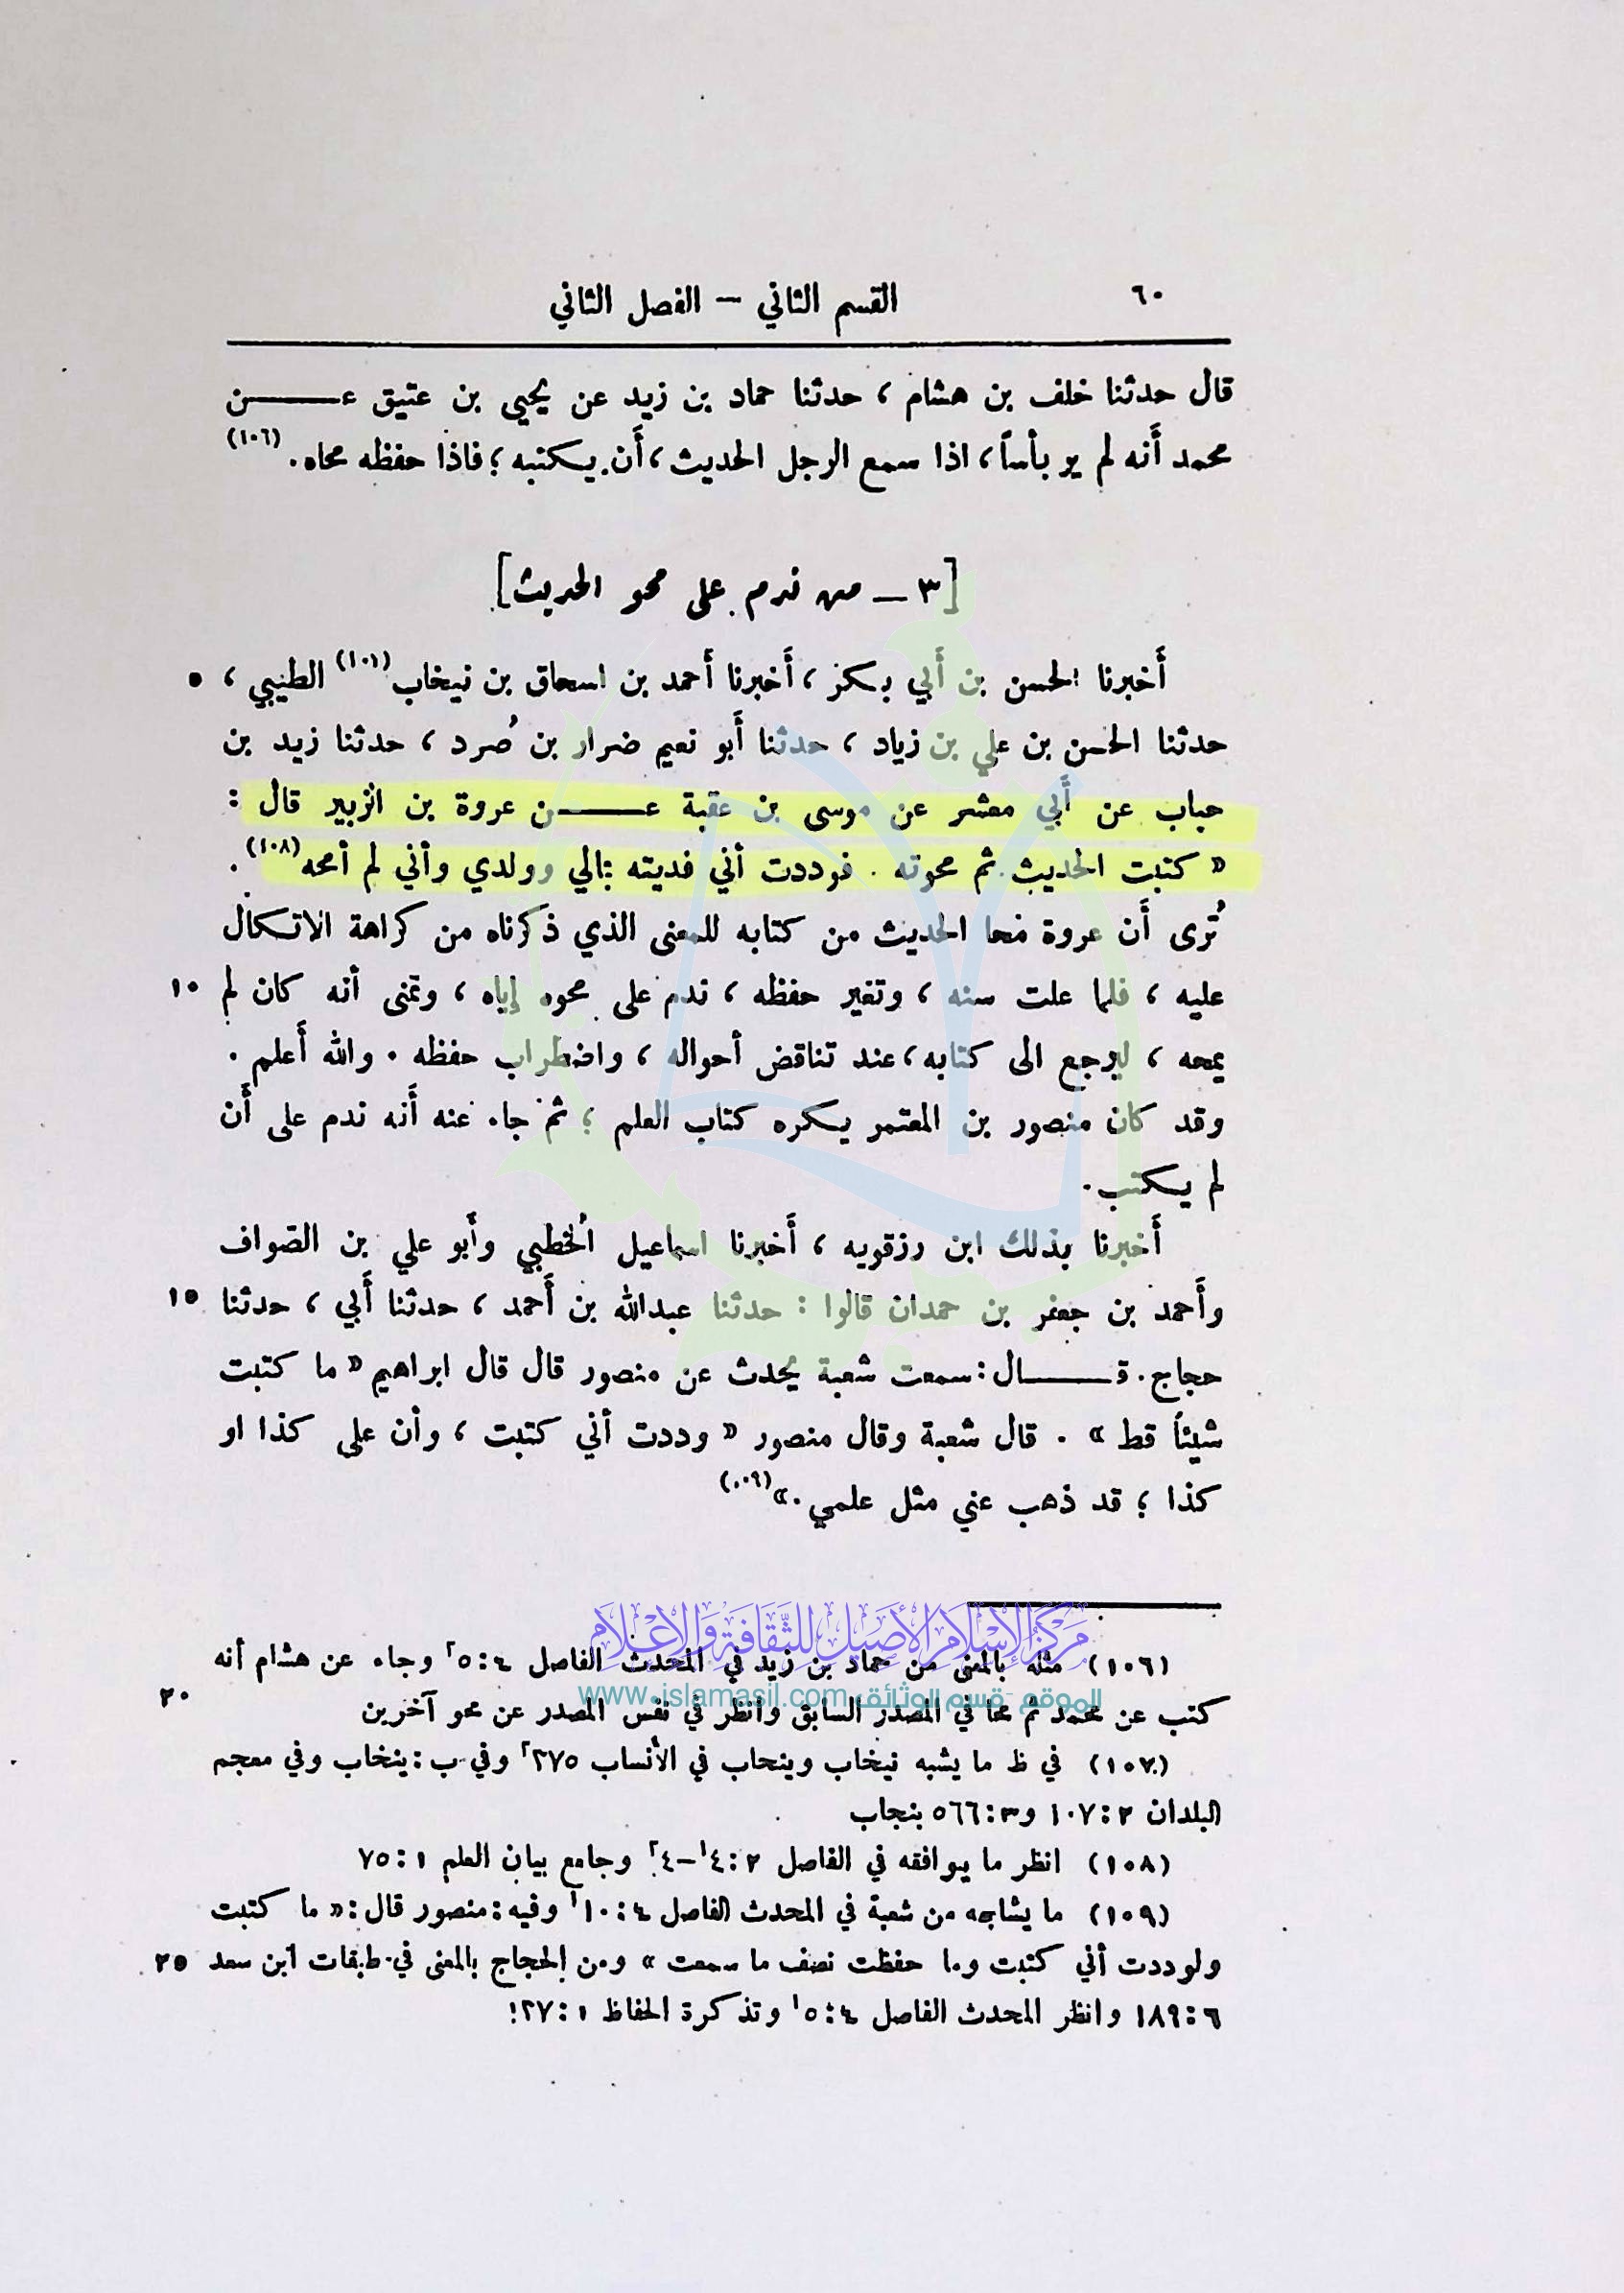 ٦٠ القسم الثاني – الفصل الثاني
قال حدثنا خلف بن هشام ، حدثنا حماد بن زيد عن يحيى بن عتيق عن
محمد أنه لم ير بأساً ، اذا سمع الرجل الحديث ، أن يكتبه ؛ فاذا حفظه محاه . (١٠٦)
[٣ – من ندم على محو الحديث]
أخبرنا الحسن بن أبي بكر ، أخبرنا أحمد بن اسحاق بن نيخاب (١٠١) الطيبي ، ٥
حدثنا الحسن بن علي بن زياد ، حدثنا أبو نعيم ضرار بن صُرد ، حدثنا زيد بن
حباب عن أبي معشر عن موسى بن عقبة عن عروة بن الزبير قال :
« كتبت الحديث ثم محوته . فوددت أني فديته بمالي وولدي وأني لم أمحه (١٠٨) .
تُرى أن عروة محا الحديث من كتابه للمعنى الذي ذكرناه من كراهة الاتكال
عليه ، فلما علت سنه ، وتغير حفظه ، ندم على محوه إياه ، وتمنى أنه كان لم ١٠
يمحه ، ليرجع الى كتابه ، عند تناقض أحواله ، واضطراب حفظه . والله أعلم .
وقد كان منصور بن المعتمر يكره كتاب العلم ؛ ثم جاء عنه أنه ندم على أن
لم يكتب .
أخبرنا بذلك ابن رزقويه ، أخبرنا اسماعيل الخُطبي وأبو علي بن الصواف
وأحمد بن جعفر بن حمدان قالوا : حدثنا عبدالله بن أحمد ، حدثنا أبي ، حدثنا ١٥
حجاج . قال : سمعت شعبة يُحدث عن منصور قال قال ابراهيم « ما كتبت
شيئاً قط » . قال شعبة وقال منصور « وددت أني كتبت ، وأن على كذا او
كذا ؛ قد ذهب عني مثل علمي . » (١٠٩)
مركز الإسلام الأصيل للثقافة والإعلام
(١٠٦) مثله بالمعنى من حماد بن زيد في المحدث الفاصل ٤ : ٥٢ وجاء عن هشام أنه
الموقع - قسم الوثائق www.islamasil.com
كتب عن محمد ثم محا في المصدر السابق وانظر في نفس المصدر عن محو آخرين ٢٠
(١٠٧) في ظ ما يشبه نيخاب وينحاب في الأنساب ٣٧٥٢ وفي ب : ينخاب وفي معجم
البلدان ٢ : ١٠٧ و٣ : ٥٦٦ بنجاب
(١٠٨) انظر ما يوافقه في الفاصل ٢ : ٤١–٤٢ وجامع بيان العلم ١ : ٧٥
(١٠٩) ما يشابهه من شعبة في المحدث الفاصل ٤ : ١٠١ وفيه : منصور قال : « ما كتبت
ولوددت أني كتبت وما حفظت نصف ما سمعت » ومن الحجاج بالمعنى في طبقات ابن سعد ٢٥
٦ : ١٨٩ وانظر المحدث الفاصل ٤ : ٥١ وتذكرة الحفاظ ١ :